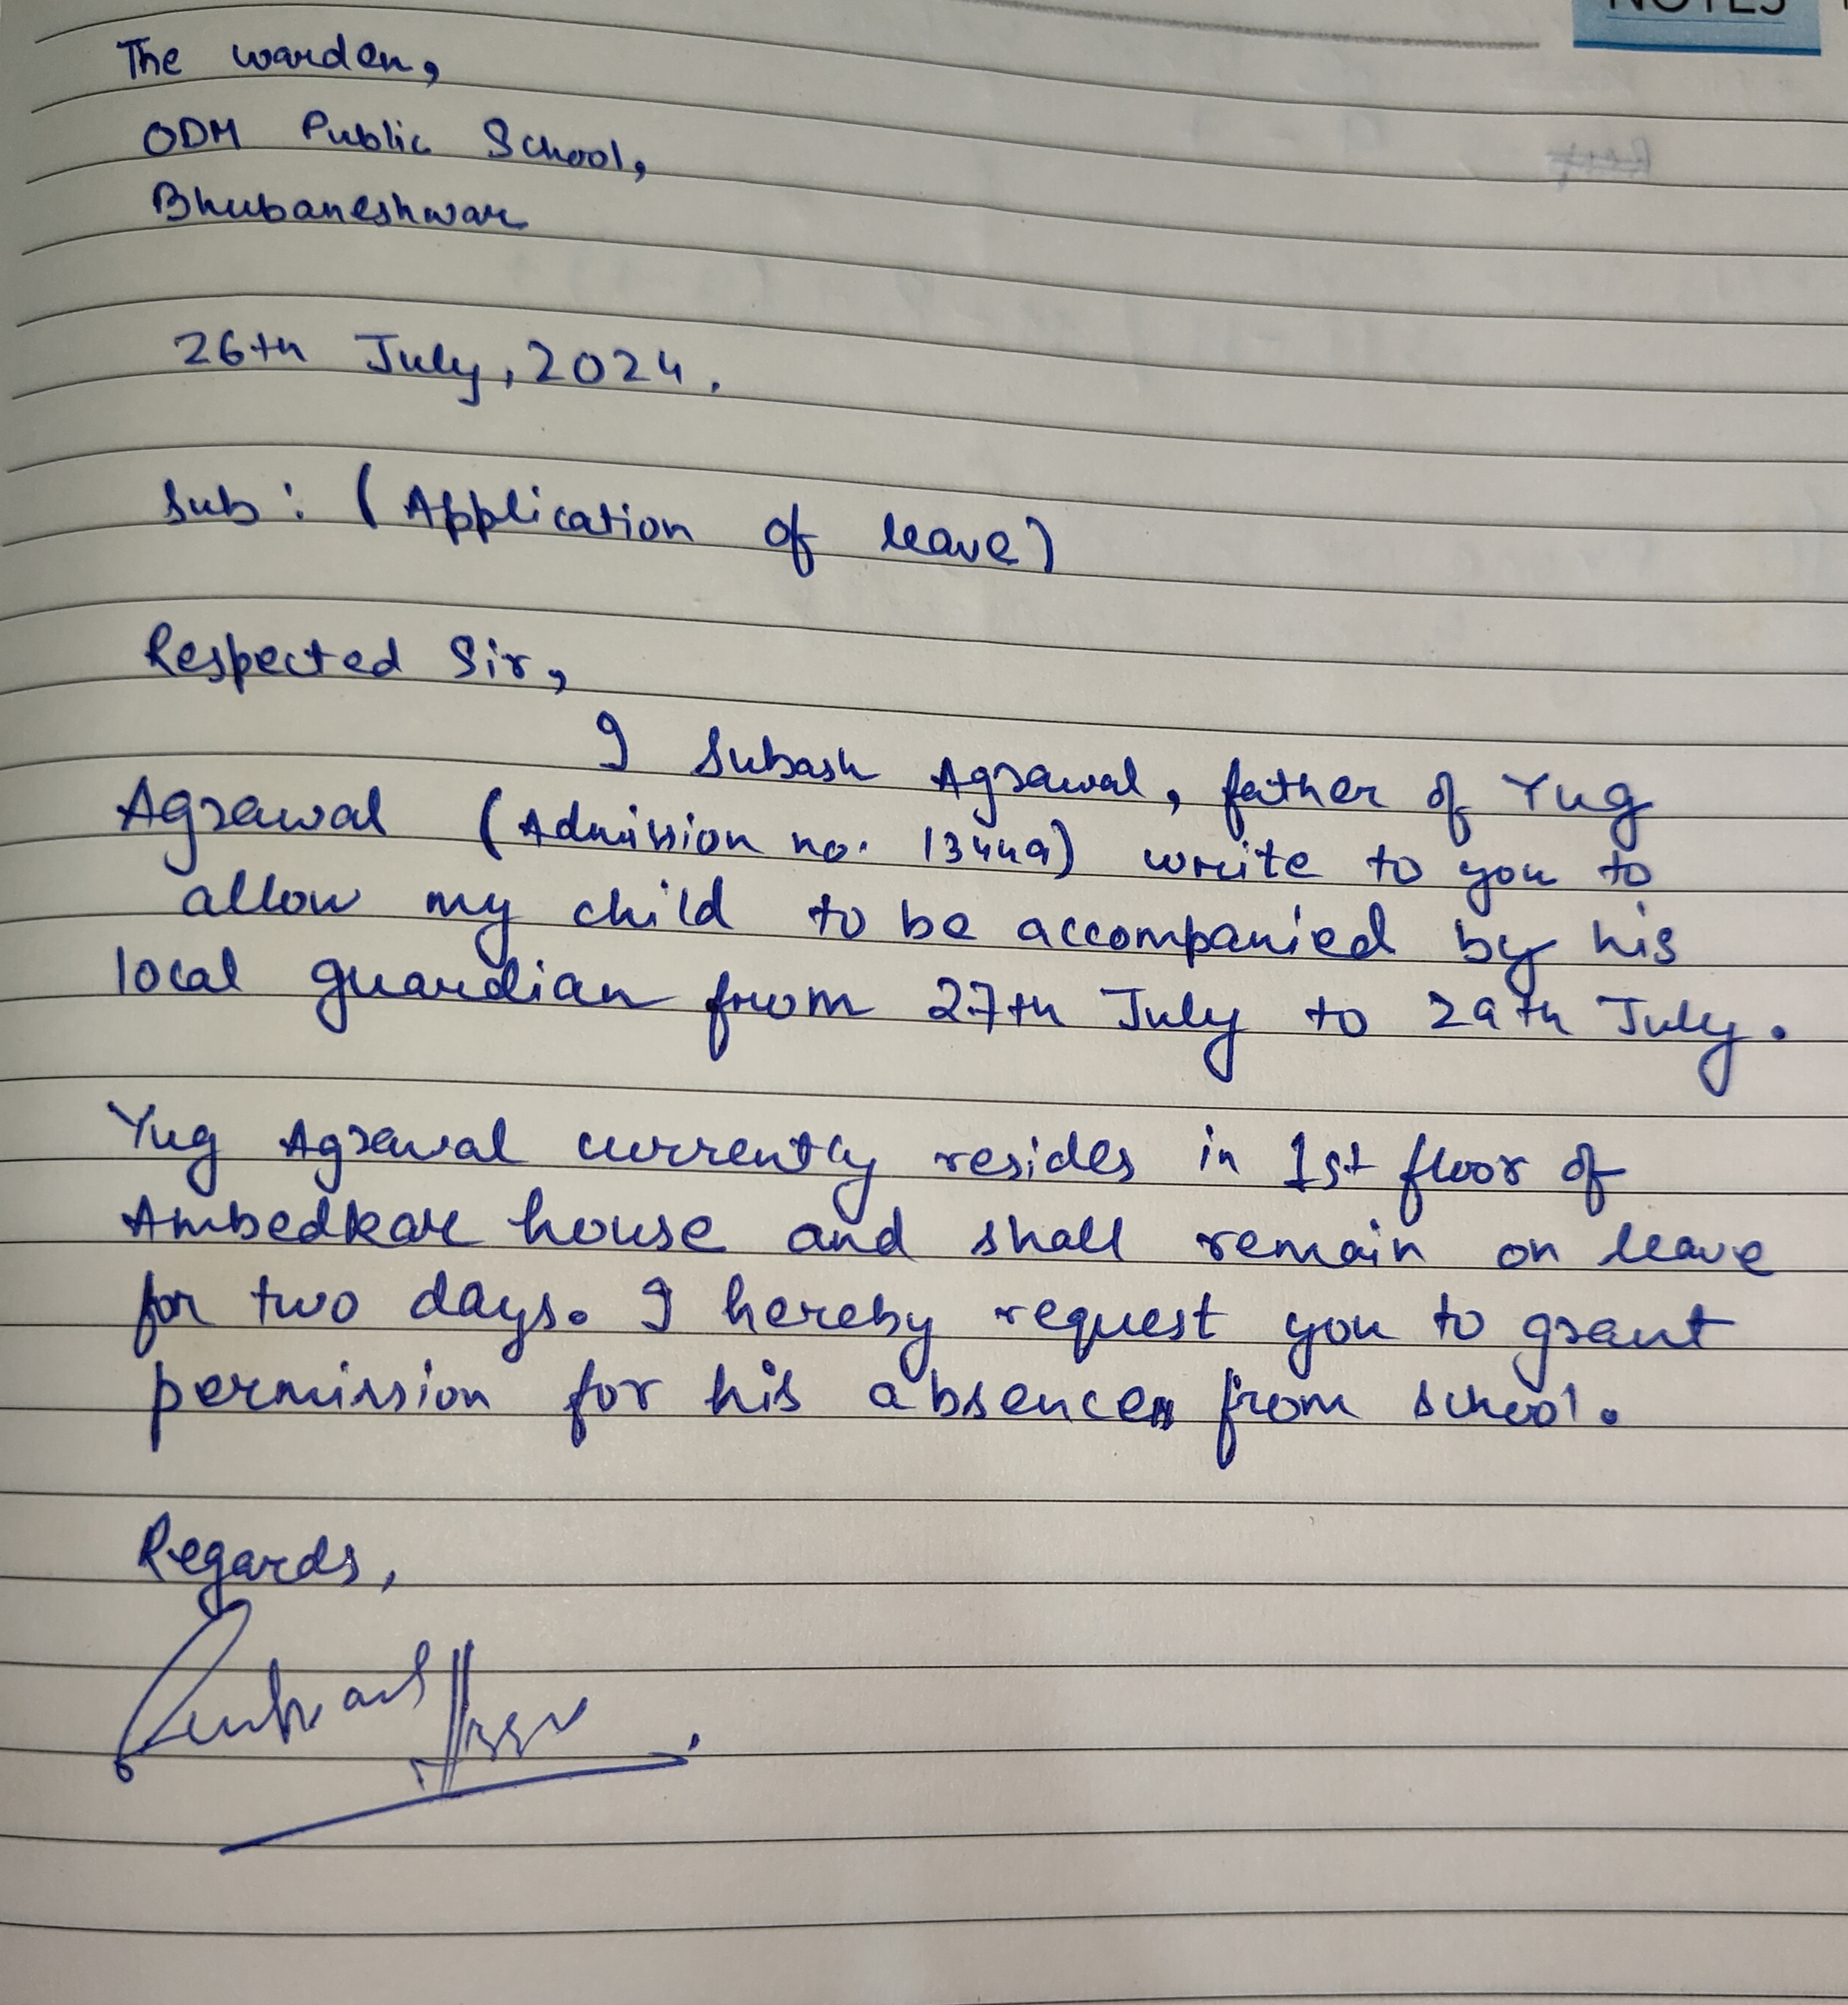 NOTES
The warden,
ODM Public School,
Bhubaneshwar
26th July, 2024.
Sub: (Application of leave)
Respected Sir,
I Subash Agrawal, father of Yug
Agrawal (Admission no. 13449) write to you to
allow my child to be accompanied by his
local guardian from 27th July to 29th July.
Yug Agrawal currently resides in 1st floor of
Ambedkar house and shall remain on leave
for two days. I hereby request you to grant
permission for his absence from school.
Regards,